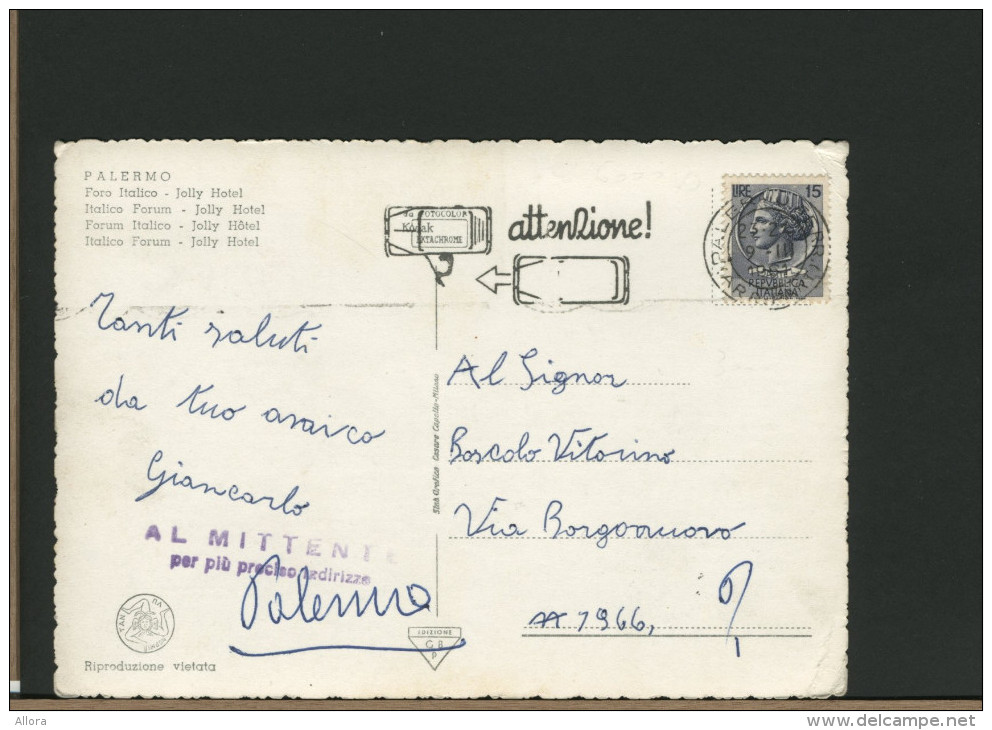 PALERMO
Foro Italico - Jolly Hotel
Italico Forum - Jolly Hotel
Forum Italico - Jolly Hôtel
Italico Forum - Jolly Hotel
da FOTOCOLOR
Kodak
EKTACHROME
attenzione!
LIRE 15
REPVBBLICA
ITALIANA
Tanti saluti
da tuo amico
Giancarlo
AL MITTENTE
per più preciso indirizzo
Palermo
Al Signor
Boscolo Vitorino
Via Borgonuovo
1966,
Stab Grafico Cesare Capello-Milano
EDIZIONE
G B
P
Riproduzione vietata
Allora
www.delcampe.net